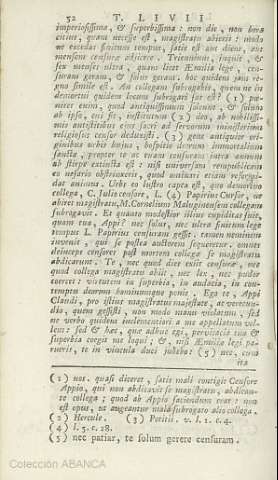 52 T. LIVII
imperiosissima, & superbissima: non die, non hora
citius, quam necesse est, magistratu abieris: modo
ne excedas finitum tempus, satis est aut diem, aut
mensem censurae adjicere. Triennium, inquit, &
sex menses ultra, quam licet Aemilia lege, cen-
suram geram, & solus geram. hoc quidem jam re-
gno simile est. An collegam subrogabis, quem ne in
demortui quidem locum subrogari fas est? (1) poe-
nitet enim, quod antiquissimum solenne, & solum
ab ipso, cui fit, institutum (2) deo, ab nobilissi-
mis antistitibus ejus sacri ad servorum ministerium
religiosus censor deduxisti. (3) gens antiquior ori-
ginibus urbis hujus, hospitio deorum immortalium
sancta, propter te ac tuam censuram intra annum
ab stirpe extincta est: nisi universam rempublicam
eo nefario obstrinxeris, quod ominari etiam reformi-
dat animus. Urbs eo lustro capta est, quo demortuo
collega, C. Julio censore, L. (4) Papirius Cursor, ne
abiret magistratu, M. Cornelium Maluginensem collegam
subrogavit. Et quanto modestior illius cupiditas fuit,
quam tua, Appi? nec solus, nec ultra finitum lege
tempus L. Papirius censuram gessit. tamen neminem
invenit, qui se postea auctorem sequeretur. omnes
deinceps censores post mortem collegae se magistratu
abdicarunt. Te, nec quod dies exiit censurae, nec
quod collega magistratu abiit, nec lex, nec pudor
coercet: virtutem in superbia, in audacia, in con-
temptu deorum hominumque ponis. Ego te, Appi
Claudi, pro istius magistratus majestate, ac verecun-
dia, quem gessisti, non modo manu violatum, sed
ne verbo quidem inclementiori a me appellatum vel-
lem: sed & haec, quae adhuc egi, pervicacia tua &
superbia coegit me loqui; &, nisi Aemiliae legi pa-
rueris, te in vincula duci jubebo: (5) nec, cum
ita
(1) not. quasi diceret, satis mali contigit Censore
Appio, qui non abdicavit se magistratu, abdican-
te collega; quod ab Appio faciendum erat: non
est opus, ut augeantur mala subrogato alio collega.
(2) Hercule. (3) Potitii. v. l. 1. c. 4.
(4) l. 5. c. 18.
(5) nec patiar, te solum gerere censuram.
Colección ABANCA